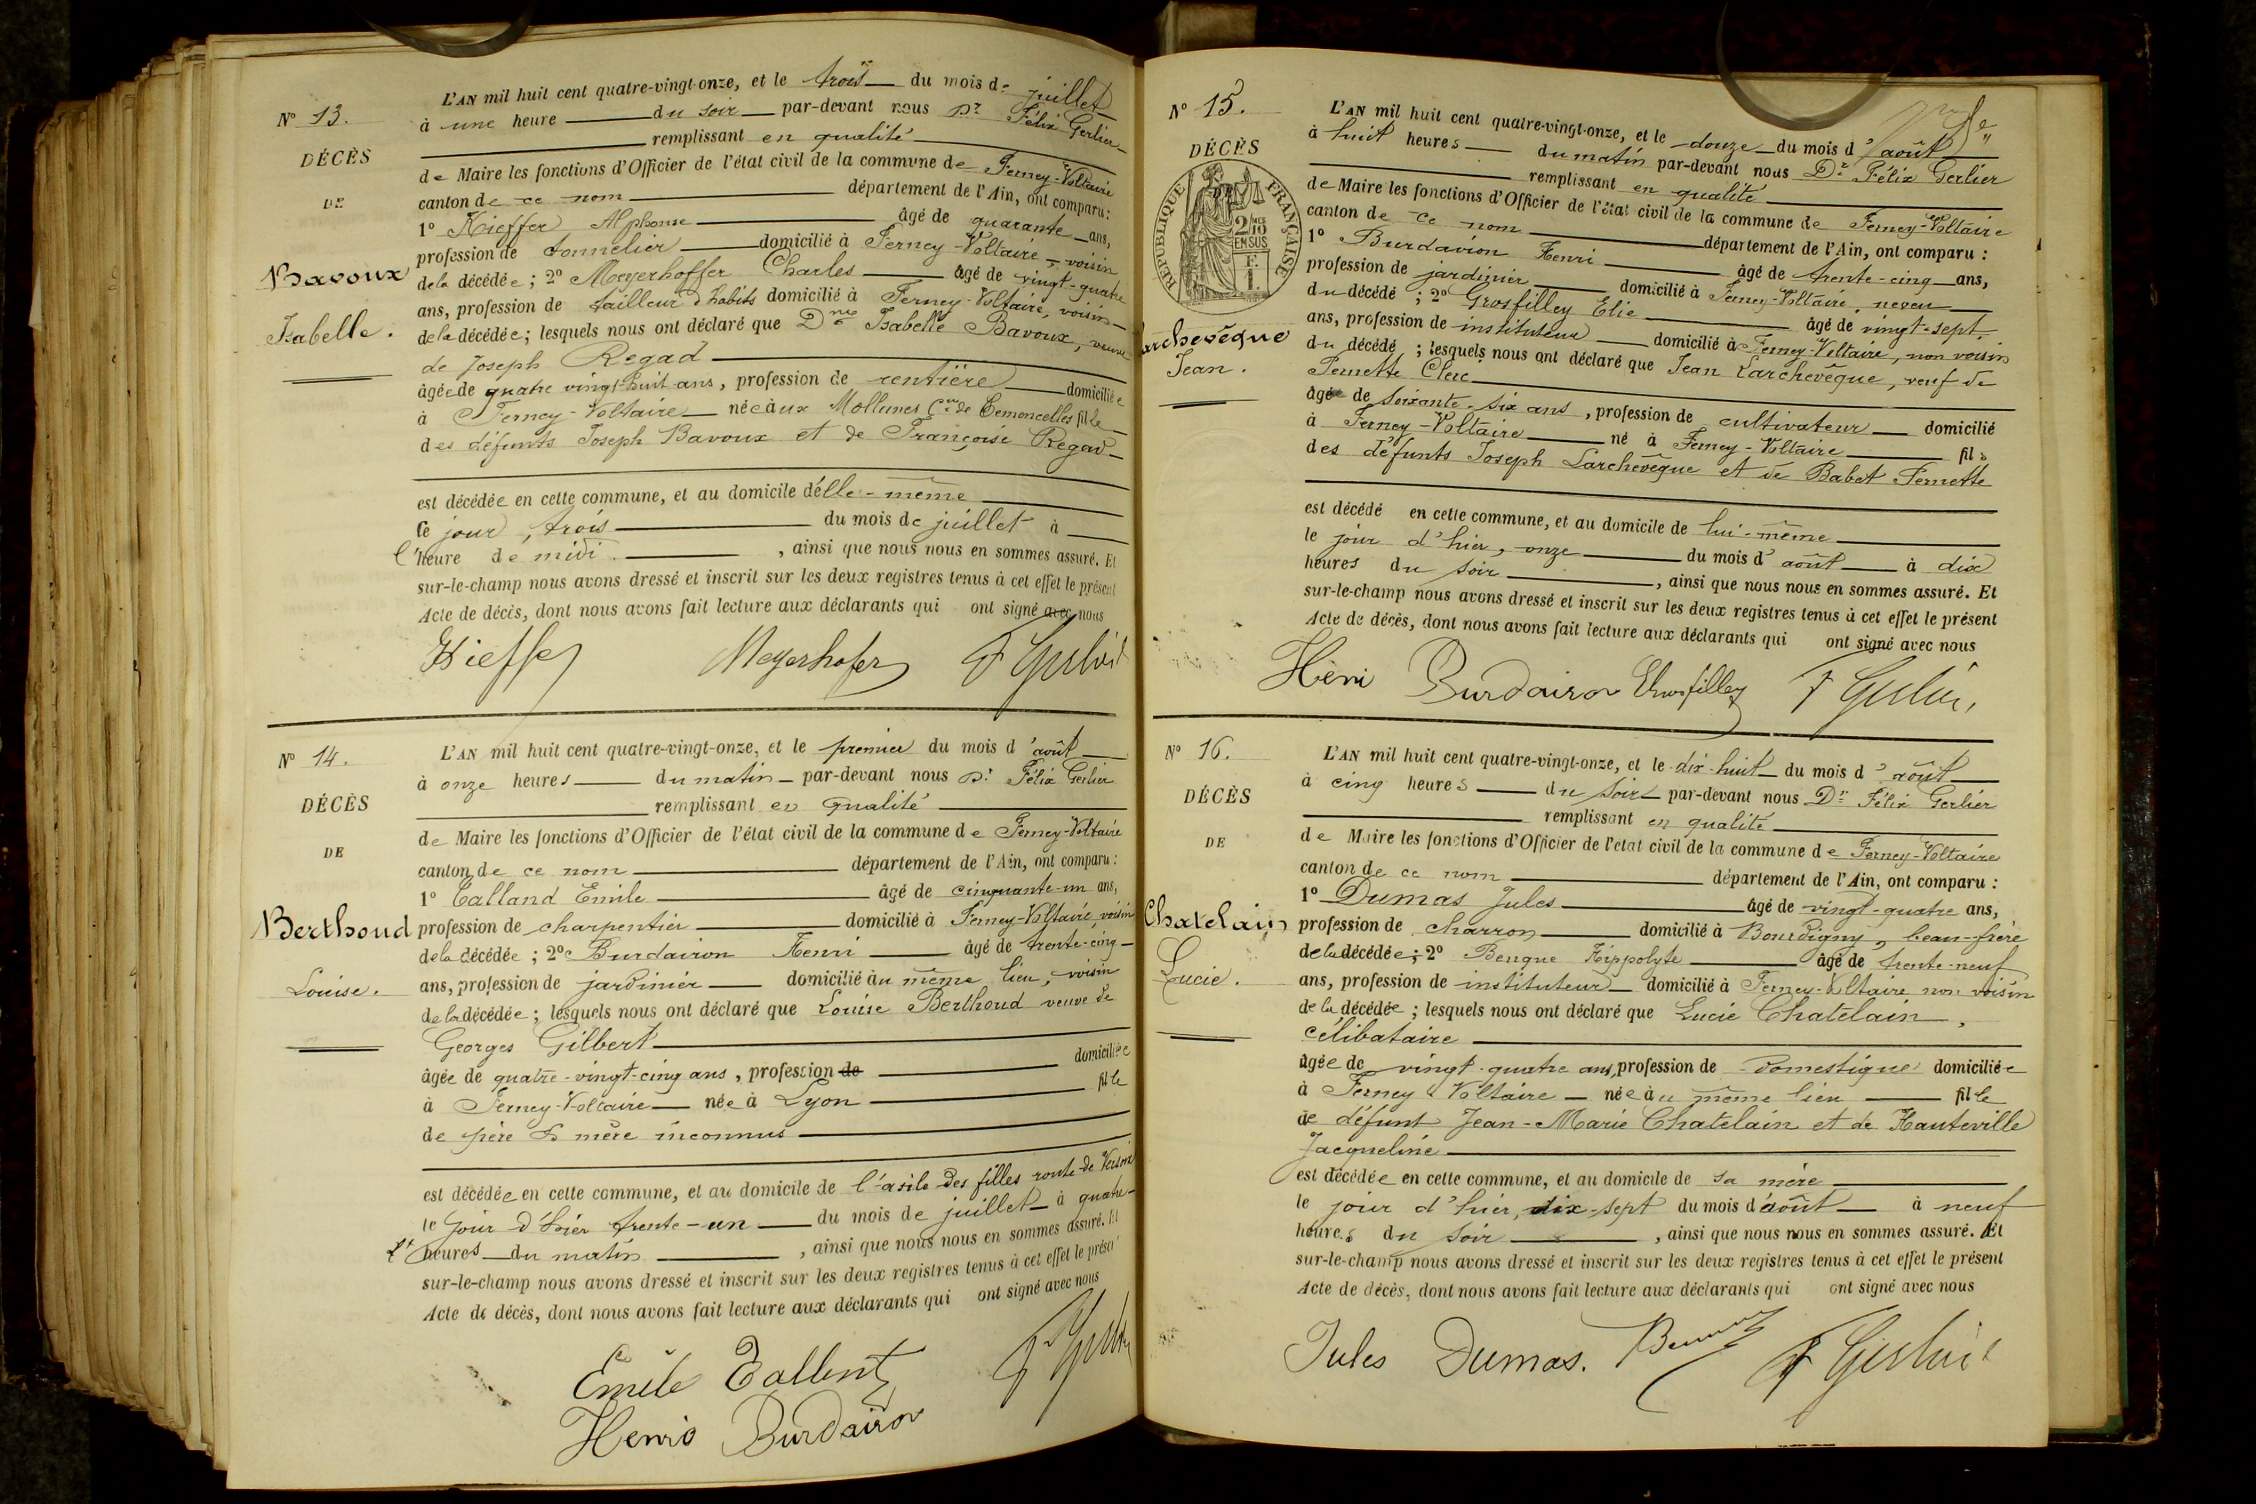 N° 13.
DÉCÈS
DE
Bavoux
Isabelle.
L'AN mil huit cent quatre-vingt-onze, et le trois du mois de juillet
à une heure du soir par-devant nous Dr Félix Gerlier
remplissant en qualité
de Maire les fonctions d'Officier de l'état civil de la commune de Ferney-Voltaire
canton de ce nom département de l'Ain, ont comparu:
1° Kieffer Alphonse âgé de quarante ans,
profession de tonnelier domicilié à Ferney-Voltaire, voisin
de la décédée; 2° Meyerhoffer Charles âgé de vingt-quatre
ans, profession de tailleur d'habits domicilié à Ferney-Voltaire, voisin
de la décédée; lesquels nous ont déclaré que Dme Isabelle Bavoux, veuve
de Joseph Regad
âgée de quatre vingt-huit ans, profession de rentière domiciliée
à Ferney-Voltaire née aux Mollunes Cne de Cemoncelles fille
des défunts Joseph Bavoux et de Françoise Regad
est décédée en cette commune, et au domicile d'elle-même
Ce jour, trois du mois de juillet à
l'heure de midi, ainsi que nous nous en sommes assuré. Et
sur-le-champ nous avons dressé et inscrit sur les deux registres tenus à cet effet le présent
Acte de décès, dont nous avons fait lecture aux déclarants qui ont signé avec nous
Kieffer Meyerhofer F Gerlier
N° 14.
DÉCÈS
DE
Berthoud
Louise.
L'AN mil huit cent quatre-vingt-onze, et le premier du mois d'août
à onze heures du matin par-devant nous Dr Félix Gerlier
remplissant en qualité
de Maire les fonctions d'Officier de l'état civil de la commune de Ferney-Voltaire
canton de ce nom département de l'Ain, ont comparu:
1° Talland Emile âgé de cinquante-un ans,
profession de charpentier domicilié à Ferney-Voltaire, voisin
de la décédée; 2° Burdairon Henri âgé de trente-cinq
ans, profession de jardinier domicilié au même lieu, voisin
de la décédée; lesquels nous ont déclaré que Louise Berthoud veuve de
Georges Gilbert
âgée de quatre-vingt-cinq ans, profession de domiciliée
à Ferney-Voltaire née à Lyon fille
de père & mère inconnus
est décédée en cette commune, et au domicile de l'asile des filles route de
le jour d'hier trente-un du mois de juillet à quatre
heures du matin, ainsi que nous nous en sommes assuré. Et
sur-le-champ nous avons dressé et inscrit sur les deux registres tenus à cet effet le présent
Acte de décès, dont nous avons fait lecture aux déclarants qui ont signé avec nous
Emile Tallent F Gerlier
Henri Burdairon
N° 15.
DÉCÈS
RÉPUBLIQUE FRANÇAISE
2/10 EN SUS
Larchevêque
Jean.
L'AN mil huit cent quatre-vingt-onze, et le douze du mois d'août
à huit heures du matin par-devant nous Dr Félix Gerlier
remplissant en qualité
de Maire les fonctions d'Officier de l'état civil de la commune de Ferney-Voltaire
canton de ce nom département de l'Ain, ont comparu:
1° Burdairon Henri âgé de trente-cinq ans,
profession de jardinier domicilié à Ferney-Voltaire, neveu
du décédé; 2° Grosfilley Elie âgé de vingt-sept
ans, profession de instituteur domicilié à Ferney-Voltaire, non voisin
du décédé; lesquels nous ont déclaré que Jean Larchevêque, veuf de
Pernette Clerc
âgé de soixante-six ans, profession de cultivateur domicilié
à Ferney-Voltaire né à Ferney-Voltaire fils
des défunts Joseph Larchevêque et de Babet Pernette
est décédé en cette commune, et au domicile de lui-même
le jour d'hier, onze du mois d'août à dix
heures du soir, ainsi que nous nous en sommes assuré. Et
sur-le-champ nous avons dressé et inscrit sur les deux registres tenus à cet effet le présent
Acte de décès, dont nous avons fait lecture aux déclarants qui ont signé avec nous
Hèni Burdairon Grosfilley F Gerlier
N° 16.
DÉCÈS
DE
Chatelain
Lucie.
L'AN mil huit cent quatre-vingt-onze, et le dix-huit du mois d'août
à cinq heures du soir par-devant nous Dr Félix Gerlier
remplissant en qualité
de Maire les fonctions d'Officier de l'état civil de la commune de Ferney-Voltaire
canton de ce nom département de l'Ain, ont comparu:
1° Dumas Jules âgé de vingt-quatre ans,
profession de charron domicilié à Bourdigny, beau-frère
de la décédée; 2° Benque Hippolyte âgé de trente-neuf
ans, profession de instituteur domicilié à Ferney-Voltaire non voisin
de la décédée; lesquels nous ont déclaré que Lucie Chatelain,
célibataire
âgée de vingt-quatre ans, profession de domestique domiciliée
à Ferney Voltaire née au même lieu fille
de défunt Jean-Marie Chatelain et de Hauteville
Jacqueline
est décédée en cette commune, et au domicile de sa mère
le jour d'hier, dix-sept du mois d'août à neuf
heures du soir, ainsi que nous nous en sommes assuré. Et
sur-le-champ nous avons dressé et inscrit sur les deux registres tenus à cet effet le présent
Acte de décès, dont nous avons fait lecture aux déclarants qui ont signé avec nous
Jules Dumas. F Gerlier